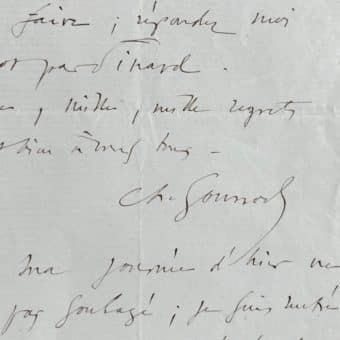 faire ; répondez moi
par Dinard.
, mille, mille regrets
bien à vous tous -
Ch. Gounod
ma journée d'hier ne
pas soulagé ; je suis